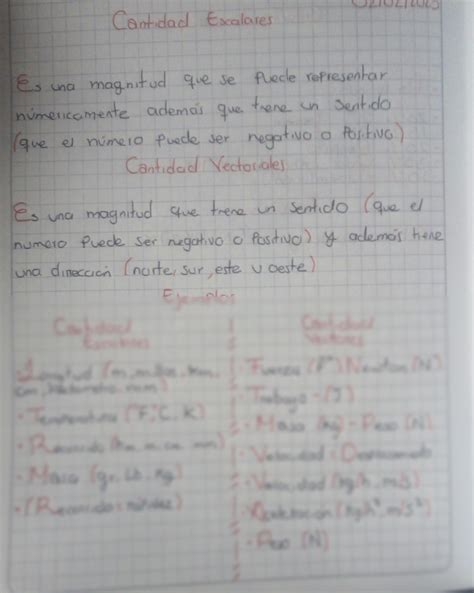 02/02/2023
Cantidad Escalares
Es una magnitud que se puede representar
númericamente además que tiene un sentido
(que el número puede ser negativo o Positivo)
Cantidad Vectoriales
Es una magnitud que tiene un sentido (que el
numero Puede ser negativo o Positivo) y además tiene
una dirección (norte, sur, este u oeste)
Ejemplos
Cantidad
Escalares
Cantidad
Vectores
· Longitud (m, km,
· Fuerza (F) Newton (N)
· Trabajo - (J)
· Temperatura (F, C, K)
· Masa (kg) - Peso (N)
· Recorrido (km, m, cm, mm)
· Velocidad
· Masa (gr, Lb, Kg)
· Velocidad (kg/h, m/s)
· (Recorrido
· Aceleración
· Peso (N)